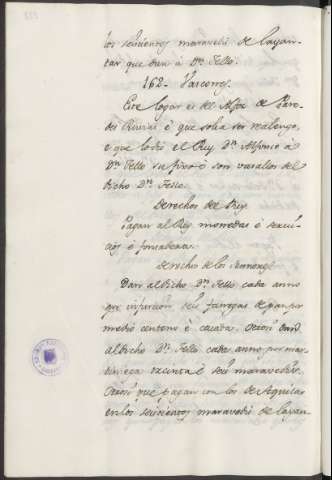 los seiscientos maravedis de layan-
tar que dan a Dn. Tello.
162. Varcones.
Este logar es del Alfoz de Pare-
des Ruvias è que solia ser realengo,
è que lo diò el Rey Dn. Alfonso à
Dn. Tello su fixo è son vasallos del
dicho Dn. Tello.
Derechos del Rey.
Pagan al Rey monedas è servi-
cios è fonsadera.
Derechos de los
Dan al dicho Dn. Tello cada anno
por infurcion seis fanegas de pan por
medio centeno è cevada. Otrosi dan
al dicho Dn. Tello cada anno por mar-
tiniega è seis maravedis.
Otrosi que pagan con los de Aguilar
en los seiscientos maravedis de layan-